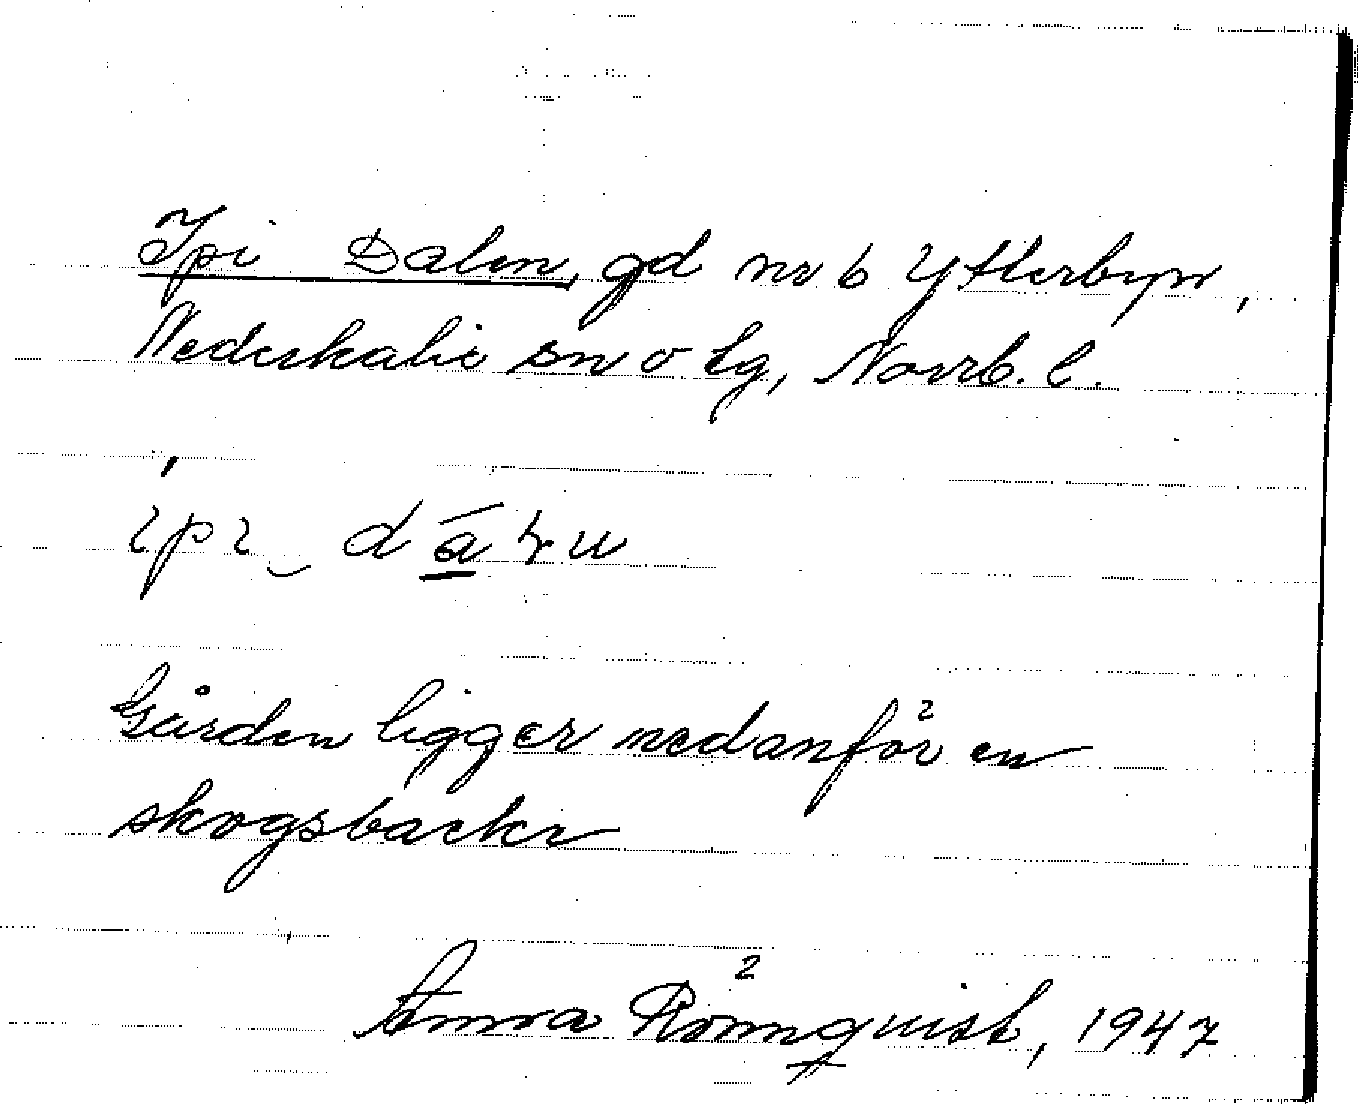 Ipi Dalen, gd nr 6 Ytterbyn,
Nederkalix sn o lg, Norrb. l.
Gården ligger nedanför en
skogsbacke
Anna Rönnquist, 1947